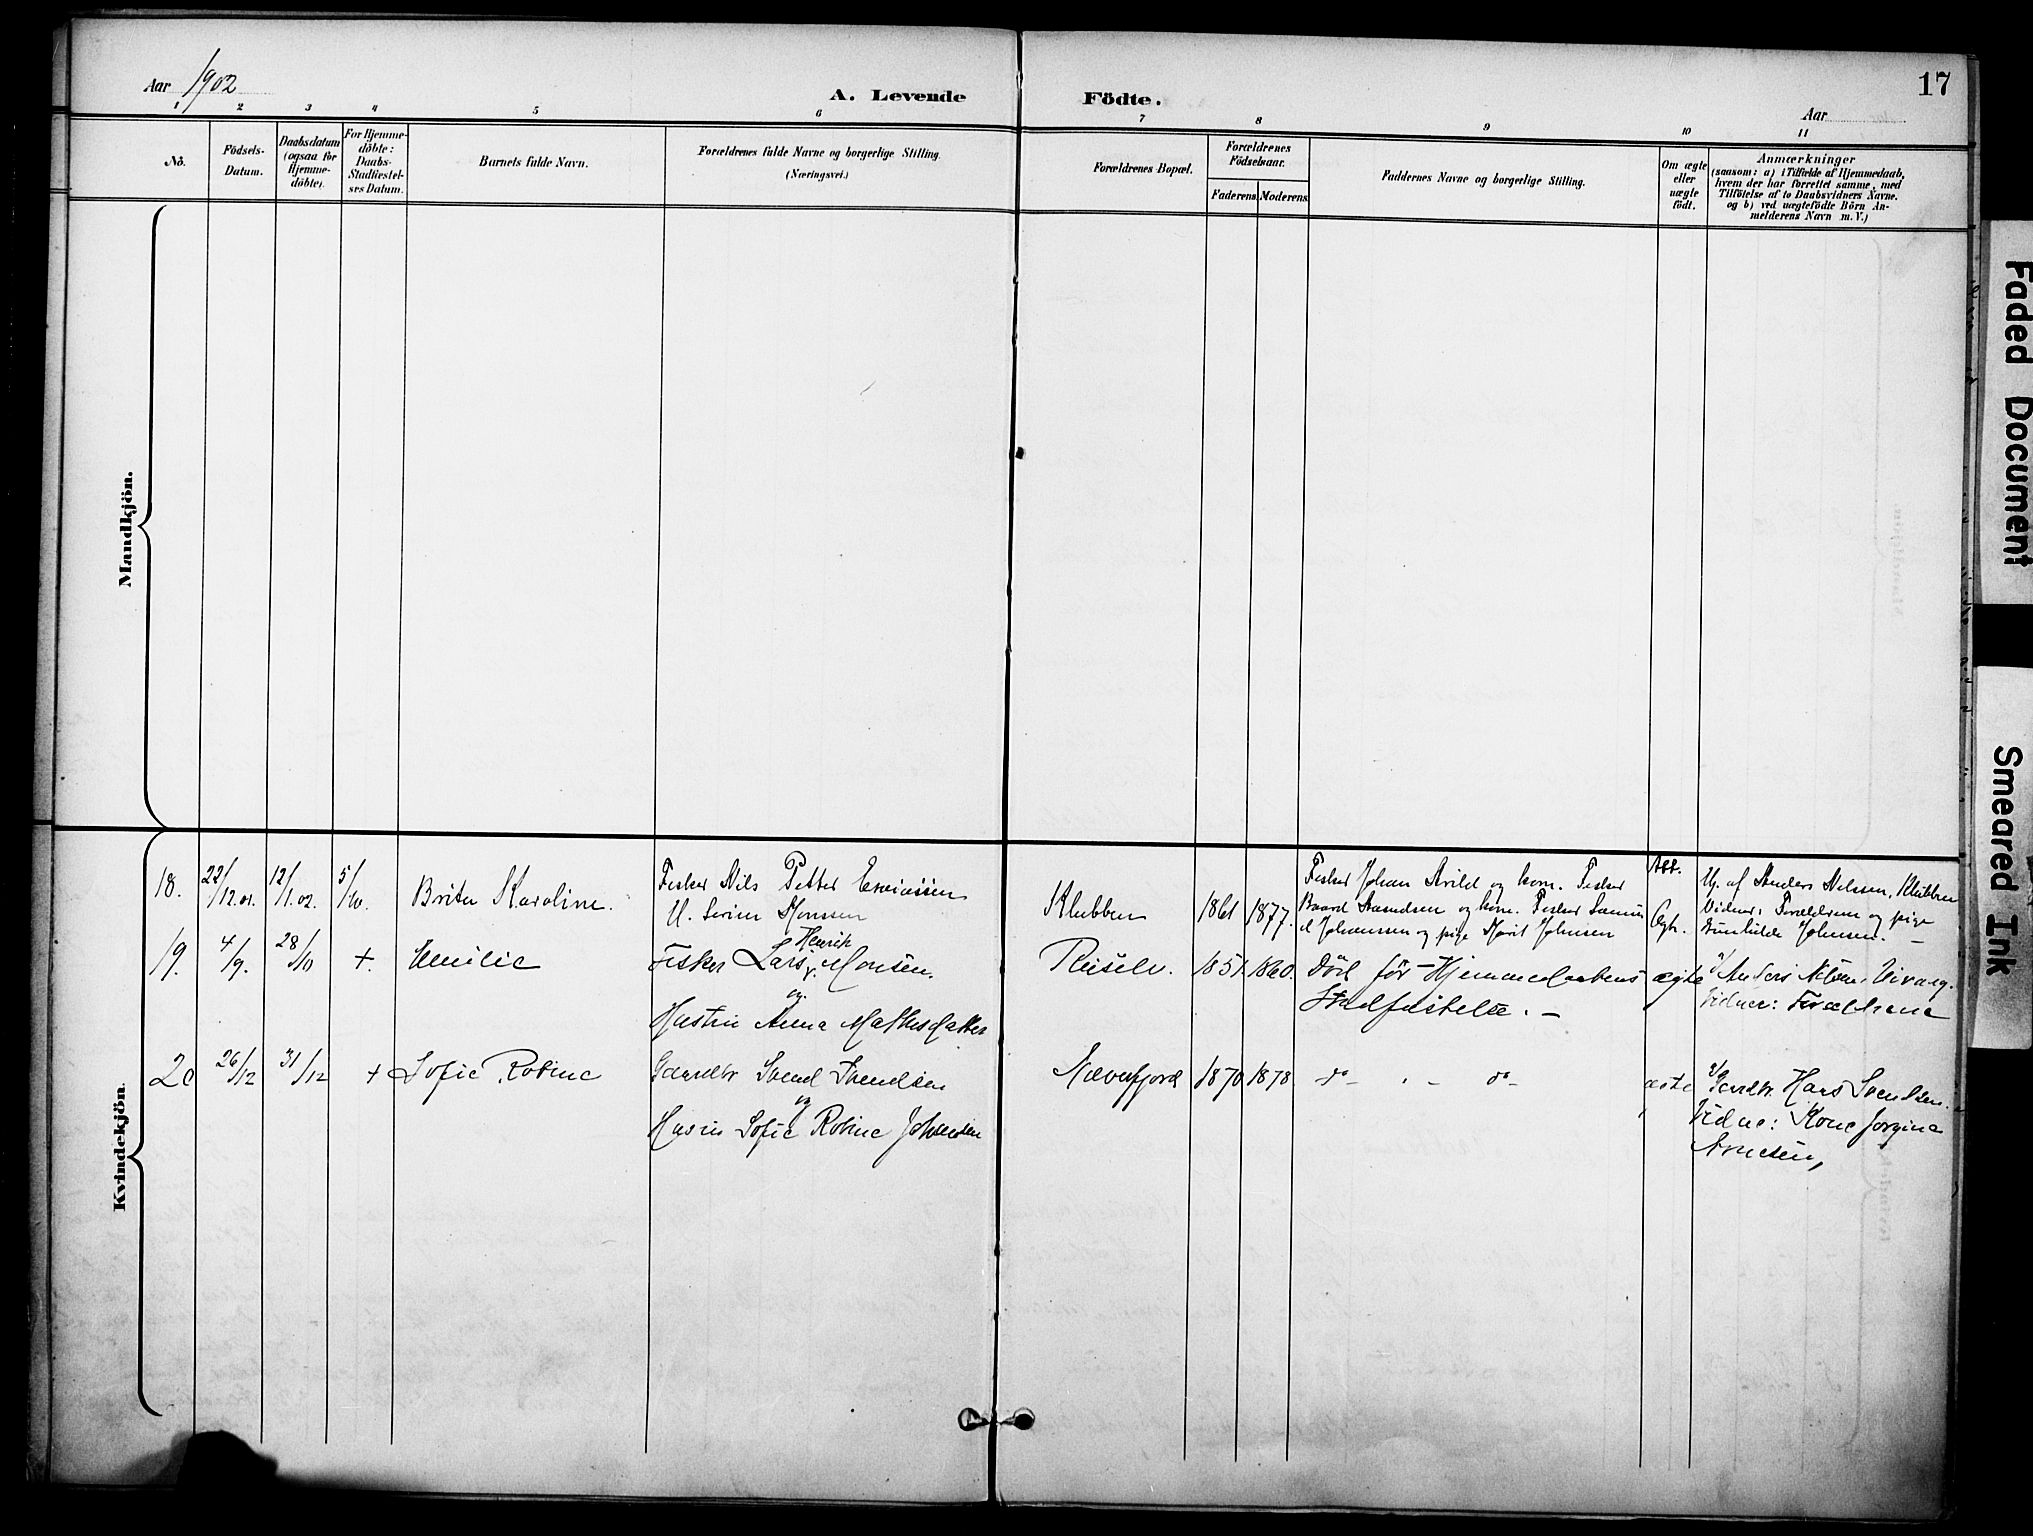 Aar 1902
A. Levende Födte.
17
Aar
1 2 3 4 5 6 7 8 9 10 11
No.
Födsels-
Datum.
Daabsdatum
(ogsaa for
Hjemme-
döbte).
For Hjemme-
döbte:
Daabs-
Stadfæstel-
ses Datum.
Barnets fulde Navn.
Forældrenes fulde Navne og borgerlige Stilling.
(Næringsvei.)
Forældrenes Bopæl.
Forældrenes
Födselsaar.
Faderens. Moderens.
Faddernes Navne og borgerlige Stilling.
Om ægte
eller
uægte
födt.
Anmærkninger
(saasom: a) i Tilfælde af Hjemmedaab,
hvem der har forrettet samme, med
Tilföielse af to Daabsvidners Navne.
og b) ved uægtefödte Börn An-
melderens Navn m. V.)
Mandkjön.
Kvindekjön.
18. 22/12.01. 12/1.02. 5/10. Brita Karoline.
Fisker Nils Petter
H.
Klubben
1861 1877.
Fisker Johan og kone. Fisker
Baard og kone. Fisker
Johanssen og pige Marit Johnsen
Ægt.
Hj. af Anders Nilssen, Klubben
Vidner: Forældrene og pige
Johnsen.
19. 4/9. 28/10 +. Emilie
Fisker Lars Henrik Monsen.
og
Hustru Anna
1851. 1860.
Död för Hjemmedaabens
Stadfæstelse. —
ægte
v/ Anders Nilsen,
Vidner: Forældrene
20 26/12 31/12 + Sofie Robine
Gaardbr Svend Svendsen
og
Hustru Sofie Robine
1870 1878
do — do —
ægte
v/ Gaardbr. Hans Svendsen.
Vidne: Kone Jorgine
Arnesen,
Faded Document
Smeared Ink